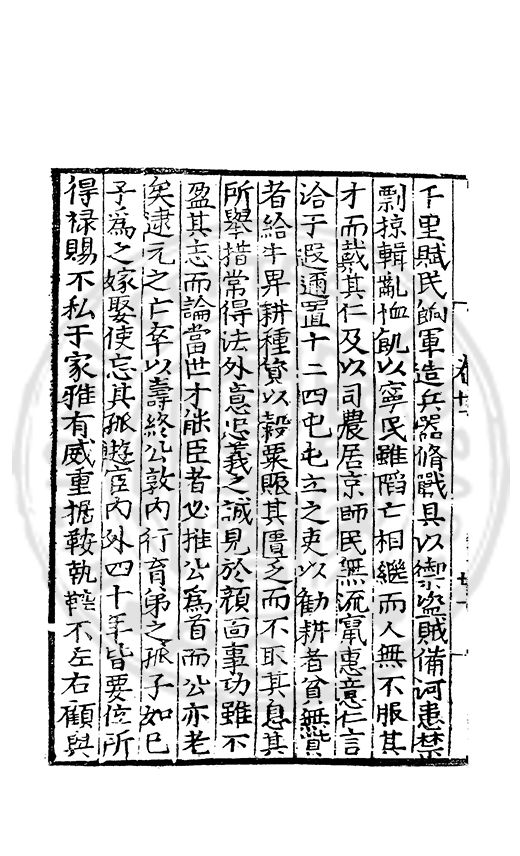 千里賦民餉軍造兵器脩戰具以禦盜賊備河患禁
剽掠輯亂恤飢以寧民雖陷亡相繼而人無不服其
才而戴其仁及以司農居京師民無流竄惠意仁言
洽于遐邇置十二四屯屯立之吏以勸耕者貧無貲
者給牛畀耕種貸以穀粟賑其匱乏而不取其息其
所舉措常得法外意忠義之誠見於顏面事功雖不
盈其志而論當世才能臣者必推公爲首而公亦老
矣逮元之亡卒以壽終公敦內行育弟之孤子如已
子爲之嫁娶使忘其孤遊宦內外四十年皆要位所
得祿賜不私于家雅有威重據鞍執轡不左右顧與